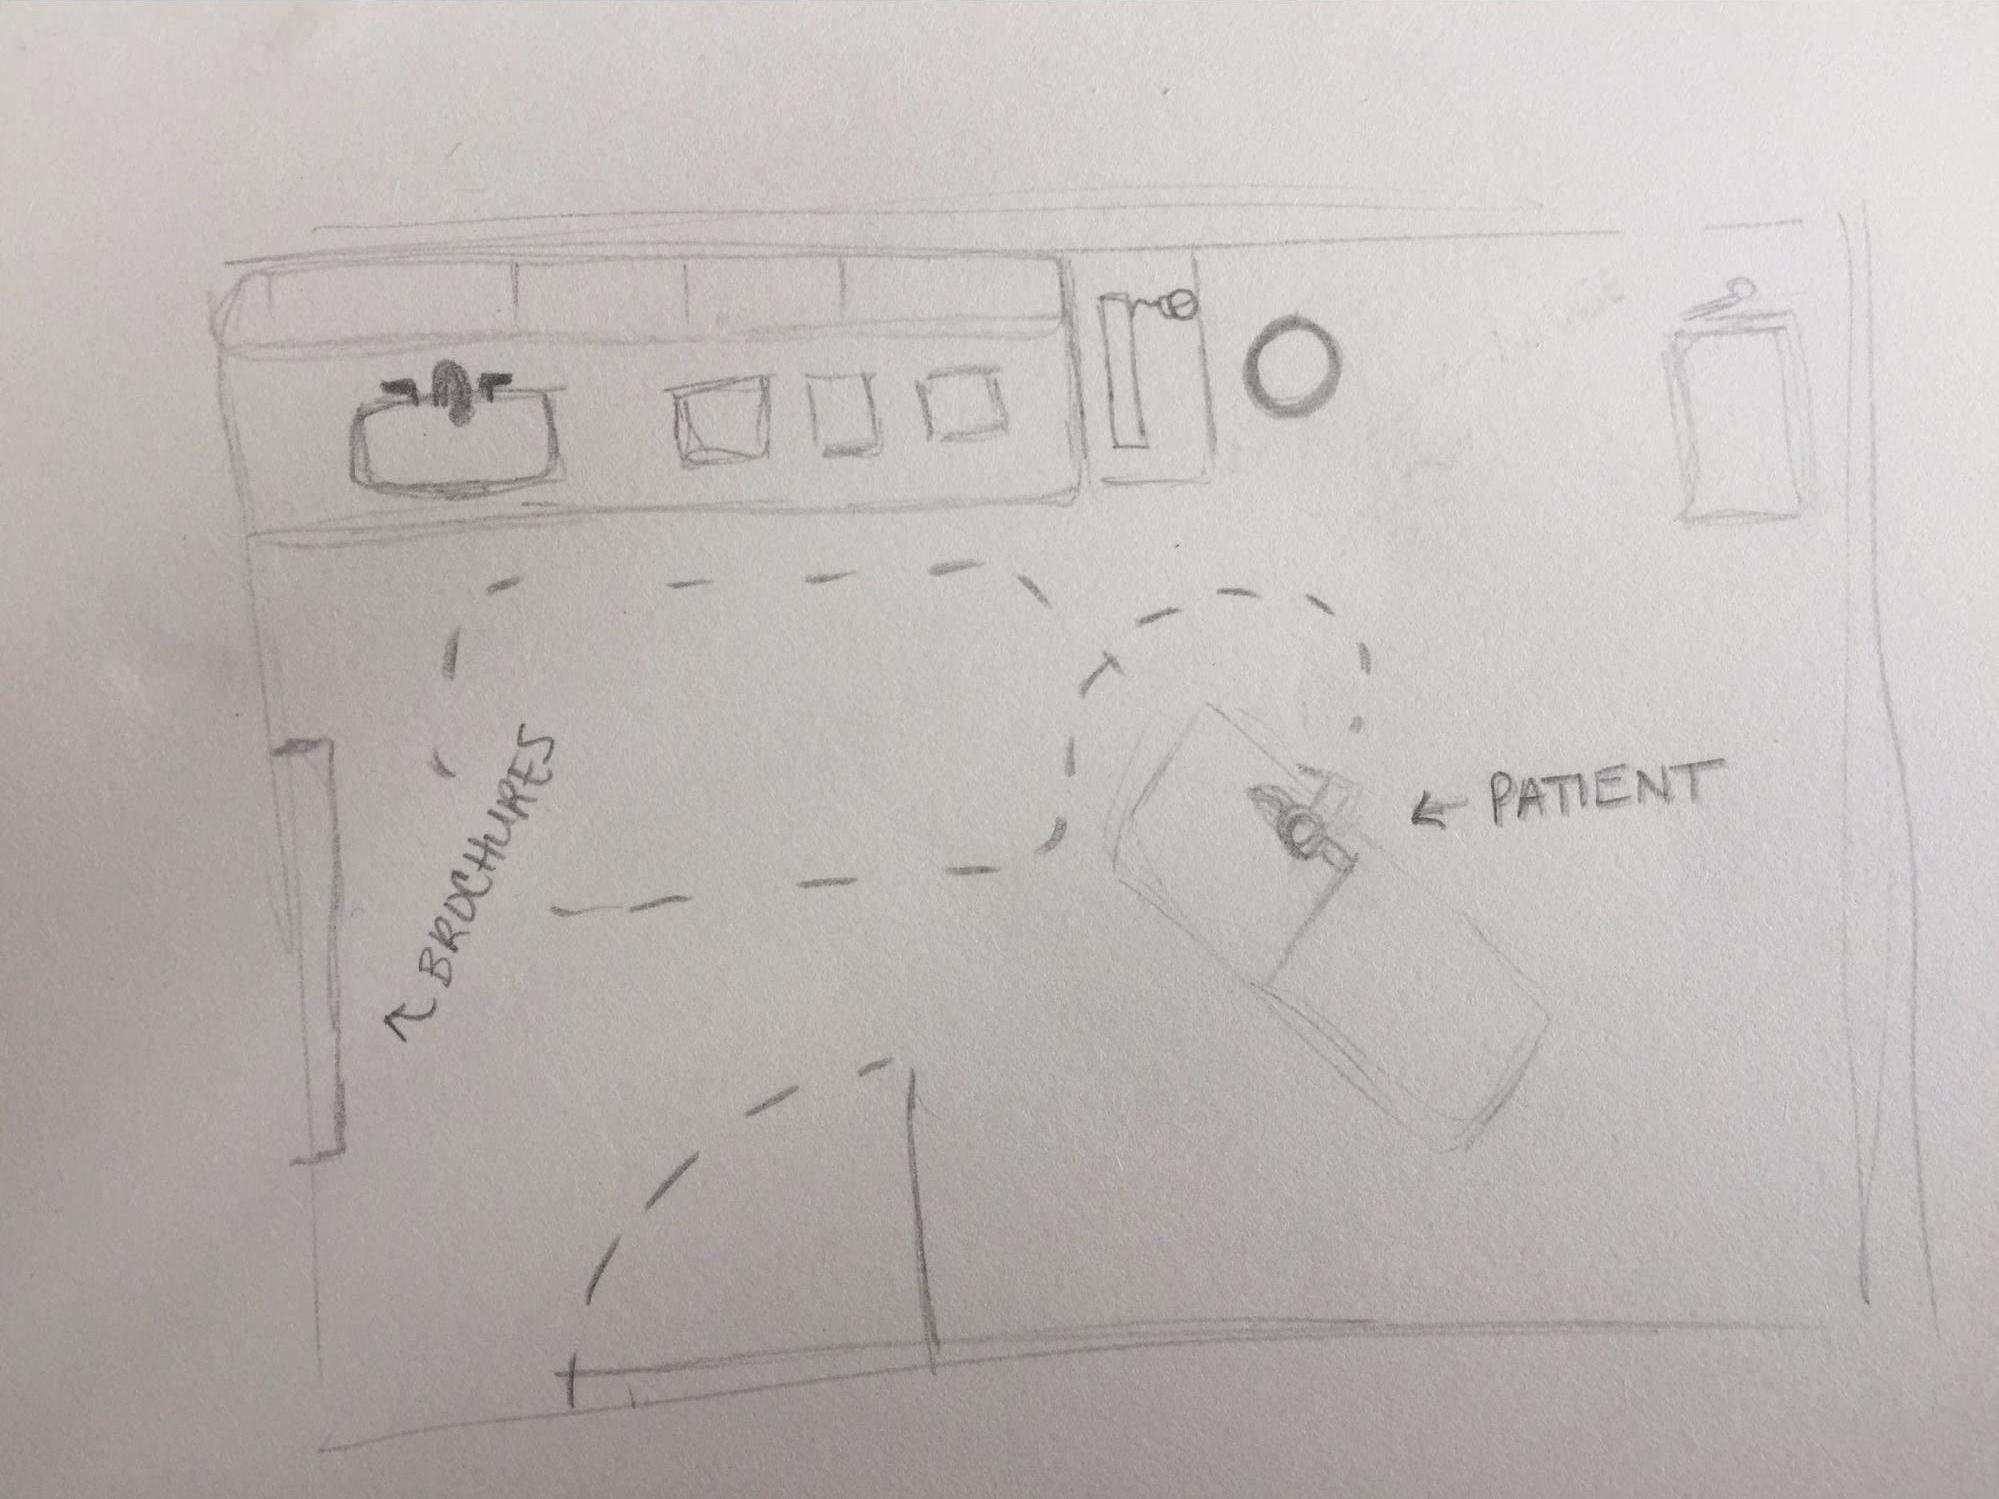 BROCHURES
PATIENT